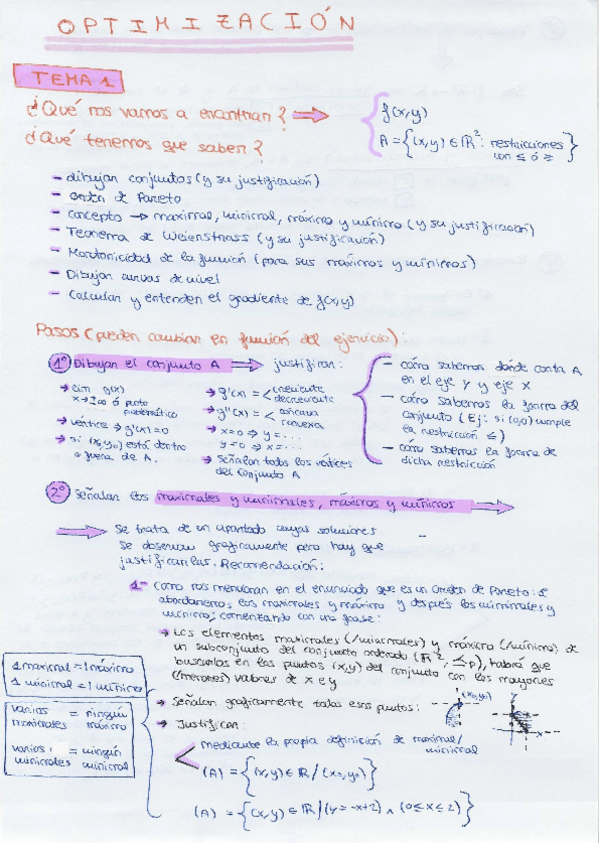 OPTIMIZACIÓN
TEMA 1
¿Qué nos vamos a encontrar? ⇒ { f(x,y)
A = {(x,y) ∈ ℝ²: restricciones con ≤ ó ≥}
¿Qué tenemos que saber?
- dibujar conjuntos (y su justificación)
- orden de Pareto
- concepto → maximal, minimal, máximo y mínimo (y su justificación)
- Teorema de Weierstrass (y su justificación)
- Monotonicidad de la función (para sus máximos y mínimos)
- Dibujar curvas de nivel
- Calcular y entender el gradiente de f(x,y)
Pasos (pueden cambiar en función del ejercicio):
1º Dibujar el conjunto A ⇒ justificar:
→ lim g(x)
x→±∞ ó punto
problemático
→ vértice → g'(x)=0
→ si (x₀,y₀) está dentro
o fuera de A.
→ g'(x) = < creciente
decreciente
→ g''(x) = < cóncava
convexa
→ x=0 ⇒ y=...
y=0 ⇒ x=...
→ Señalar todos los vértices
del conjunto A
- cómo sabemos dónde corta A
en el eje Y y eje X
- cómo sabemos la forma del
conjunto (Ej: si (0,0) cumple
la restricción ≤)
- cómo sabemos la forma de
dicha restricción
2º Señalar los maximales y minimales, máximos y mínimos
Se trata de un apartado cuyas soluciones
se observan gráficamente pero hay que
justificarlas. Recomendación:
1- Como nos mencionan en el enunciado que es un Orden de Pareto:
abordaremos los maximales y máximo y después los minimales y
mínimo; comenzando con una frase:
→ Los elementos maximales (/minimales) y máximo (/mínimo) de
un subconjunto del conjunto ordenado (ℝ², ≤p), habrá que
buscarlos en los puntos (x,y) del conjunto con los mayores
(/menores) valores de x e y
→ Señalar gráficamente todos esos puntos: (x₀,y₀) Y
→ Justificar:
mediante la propia definición de maximal/
minimal
(A) = {(x,y) ∈ ℝ / (x₀,y₀)}
(A) = {(x,y) ∈ ℝ / (y=-x+2) ∧ (0≤x≤2)}
1 maximal = 1 máximo
1 minimal = 1 mínimo
varios maximales = ningún máximo
varios minimales = ningún minimal